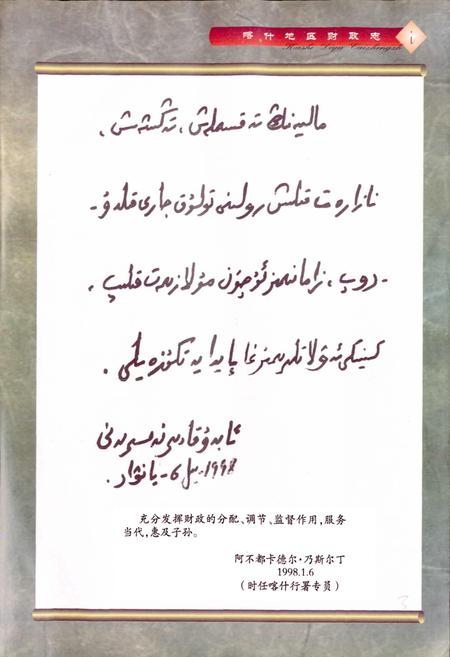 喀什地区财政志
Kashi Diqu Caizhengzhi
i
مالىيەنىڭ تەقسىملەش، تەڭشەش،
نازارەت قىلىش رولىنى تولۇق جارى قىلدۇ-
-رۇپ، زامانىمىز ئۈچۈن مۇلازىمەت قىلىپ،
كېيىنكى ئەۋلاتلىرىمىزغا پايدا يەتكۈزەيلى.
ئابدۇقادىر نەسىردىن
1998-يىل 6-يانۋار.
充分发挥财政的分配、调节、监督作用，服务
当代，惠及子孙。
阿不都卡德尔·乃斯尔丁
1998.1.6
（时任喀什行署专员）